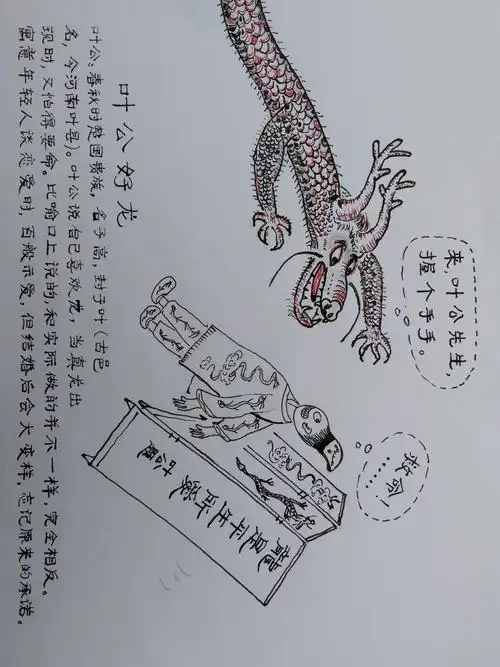 叶公好龙
叶公:春秋时楚国贵族,名子高,封于叶(古邑
名,今河南叶县)。叶公说自己喜欢龙,当真龙出
现时,又怕得要命。比喻口上说的和实际做的并不一样,完全相反。
寓意年轻人谈恋爱时,百般示爱,但结婚后会大变样,忘记原来的承诺。
来,叶公先生,
握个手手。
救命!
……
龍是平生